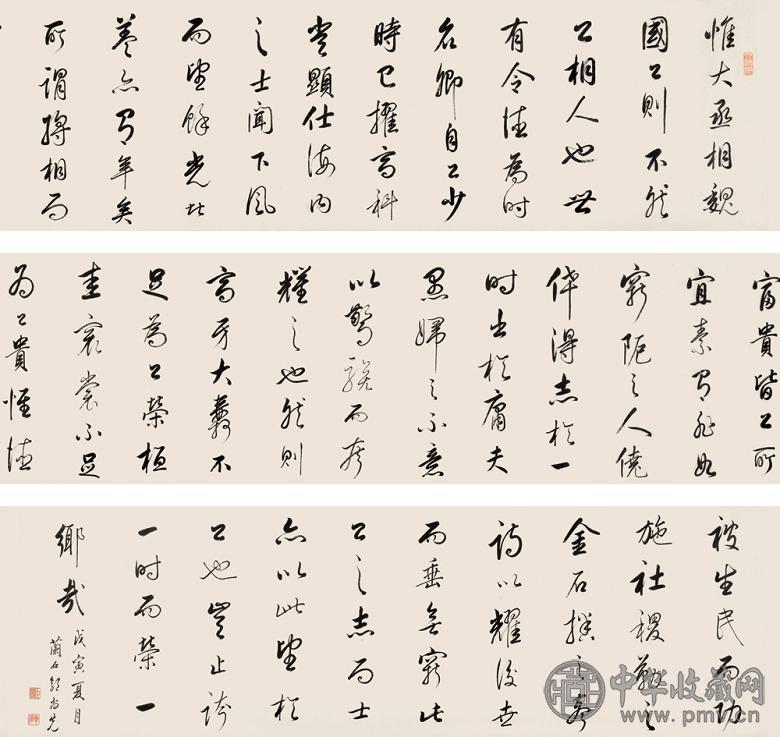 惟大丞相魏
國公則不然
公相人也世
有令德為時
名卿自公少
時已擢高科
登顯仕海內
之士聞下風
而望餘光者
蓋亦有年矣
所謂將相而
富貴皆公所
宜素有非如
窮阨之人僥
倖得志於一
時出於庸夫
愚婦之不意
以驚駭而夸
耀之也然則
高牙大纛不
足為公榮桓
圭袞裳不足
為公貴惟德
被生民而功
施社稷勒之
金石播之聲
詩以耀後世
而垂無窮此
公之志而士
亦以此望於
公也豈止誇
一時而榮一
鄉哉
戊寅夏月
蘭石郭尚先
中华收藏网
www.pmv.cn